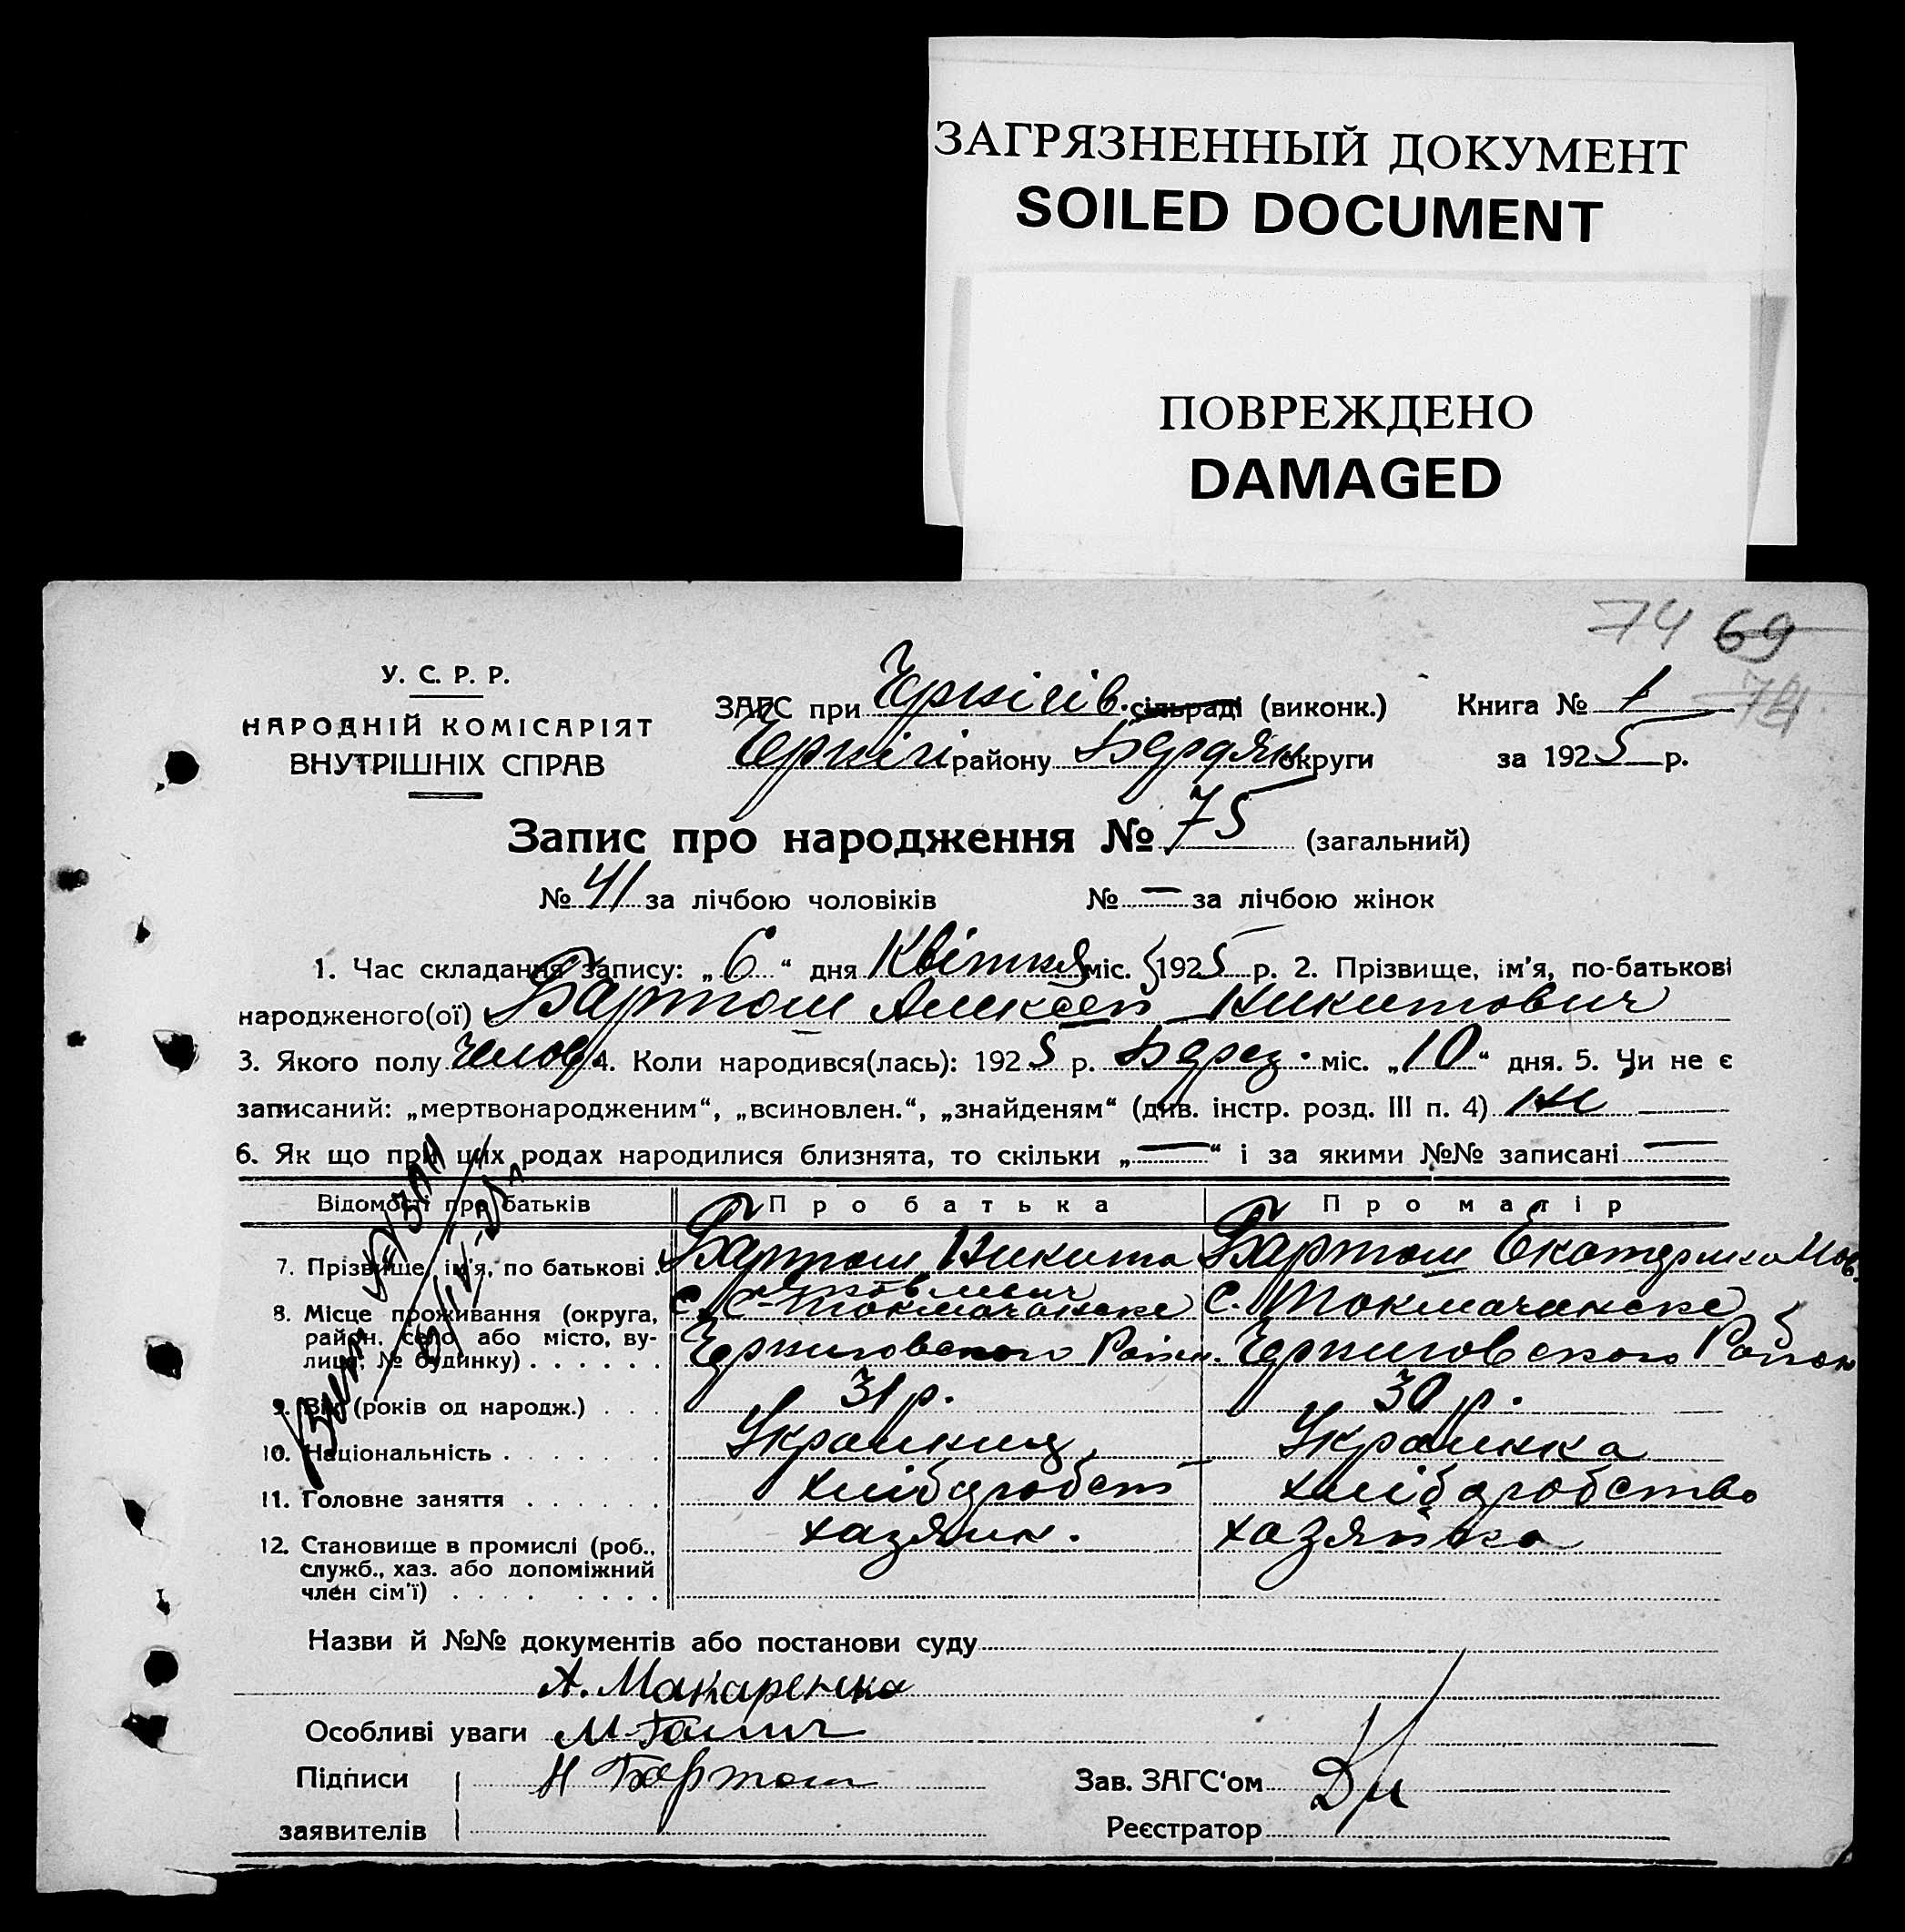 ЗАГРЯЗНЕННЫЙ ДОКУМЕНТ
SOILED DOCUMENT
ПОВРЕЖДЕНО
DAMAGED
74 69
74
У. С. Р. Р.
НАРОДНІЙ КОМІСАРІЯТ
ВНУТРІШНІХ СПРАВ
ЗАГС при Чернігів. сільраді (виконк.) Книга № 1
Чернігі району Бердян округи за 1925 р.
Запис про народження № 75 (загальний)
№ 41 за лічбою чоловіків № — за лічбою жінок
1. Час складання запису: „6“ дня Квітня міс. 1925 р. 2. Прізвище, ім'я, по-батькові
народженого(ої) Бартош Алексей Никитович
3. Якого полу Челов. 4. Коли народився(лась): 1925 р. Берез. міс. „10“ дня. 5. Чи не є
записаний: „мертвонародженим“, „всиновлен.“, „знайденям“ (див. інстр. розд. III п. 4) Не
6. Як що при цих родах народилися близнята, то скільки „—“ і за якими №№ записані —
Відомості про батьків Про батька Про матір
7. Прізвище, ім'я, по батькові . Бартош Никита Яковлевич Бартош Екатерина
8. Місце проживання (округа, район, село або місто, вулиця, № будинку) . . . . . . с. Токмачанске Черниговского Район. С. Токмачанске Черниговского Район
9. Вік (років од народж.) . . . 31 р. 30 р.
10. Національність . . . . . . . Украинец Украинка
11. Головне заняття . . . . . . хлібаробст хлібаробство
12. Становище в промислі (роб., служб., хаз. або допоміжний член сім'ї) . . . . . . . . хазяин. хазяйка
Назви й №№ документів або постанови суду
А. Макаренко
Особливі уваги М. Галич
Підписи Н Бартош Зав. ЗАГС'ом
заявителів Реєстратор